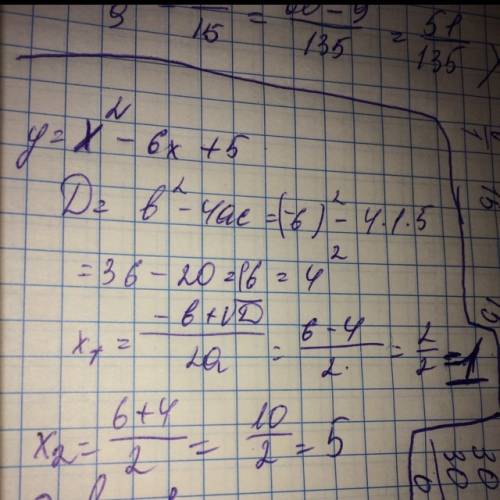 9 15 = 60 - 9 / 135 = 51 / 135
y = x² - 6x + 5
D = b² - 4ac = (-6)² - 4·1·5
= 36 - 20 = 16 = 4²
x₁ = -b + √D / 2a = 6 - 4 / 2 = 2 / 2 = 1
x₂ = 6 + 4 / 2 = 10 / 2 = 5
30
30
0